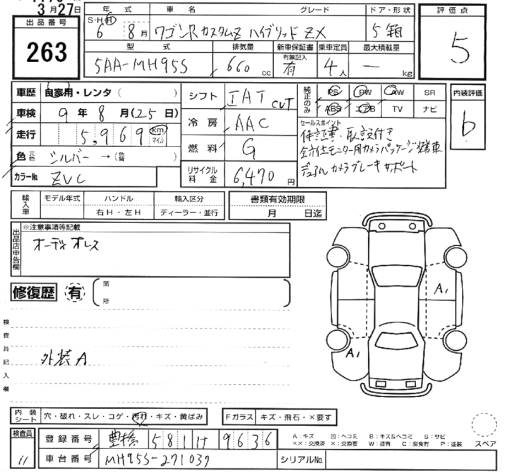 3月27日
出品番号
263
年式 車名 グレード ドア・形状
S・H・R 6年 8月 ワゴンRカスタムZ ハイブリッド ZX 5箱
型式 排気量 新車保証書 乗車定員 最大積載量
5AA-MH95S 660cc 有無記入 有 4人 — kg
評価点
5
内装評価
b
車歴 自家用・レンタ( )
車検 9年8月(25日)
走行 5,969 km マイル
色 元色 シルバー → (替 )
カラーNo. ZVC
シフト IAT CVT
冷房 AAC
燃料 G
リサイクル料金 6,470円
純正のみ PS PW AW SR
ABS エアB TV ナビ
セールスポイント
保証書・取説付き
全方位モニター用カメラパッケージ搭載車
デュアルカメラブレーキサポート
輸入車 モデル年式 ハンドル 輸入区分
年 右H・左H ディーラー・並行
書類有効期限
月 日迄
出品店申告欄
※注意事項等記載
オーディオレス
修復歴 有 箇所
検査員記入欄
外装A
A1
A1
内装シート 穴・破れ・スレ・コゲ・汚れ・キズ・黄ばみ
Fガラス キズ・飛石・×要す
検査員 11
登録番号 豊橋 581 け 9636
車台番号 MH95S-271039
シリアルNo.
A:キズ U:ヘコミ B:キズ&ヘコミ S:サビ
××:交換済 ×:交換要 W:波有 C:腐食有 P:塗装
スペア